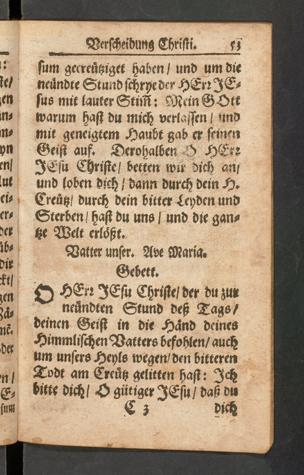 Verscheidung Christi. 53
sum gecreutziget haben / und um die
neündte Stund schrye der HErr JE-
sus mit lauter Stim̃: Mein GOtt
warum hast du mich verlassen / und
mit geneigtem Haubt gab er seinen
Geist auf. Derohalben O HErr
JEsu Christe / betten wir dich an /
und loben dich / dann durch dein H.
Creütz / durch dein bitter Leyden und
Sterben / hast du uns / und die gan-
tze Welt erlößt.
Vatter unser. Ave Maria.
Gebett.
O HErr JEsu Christe / der du zur
neündten Stund deß Tags /
deinen Geist in die Händ deines
Himmlischen Vatters befohlen / auch
um unsers Heyls wegen / den bitteren
Todt am Creütz gelitten hast: Ich
bitte dich / O gütiger JEsu / daß du
C 3 dich